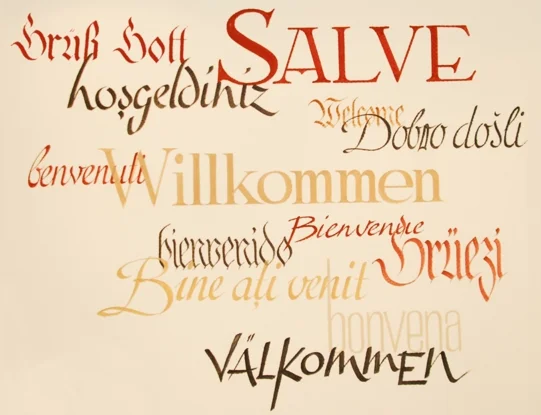 Grüß Gott
SALVE
hoşgeldiniz
Welcome
Dobro došli
benvenuti
Willkommen
Bienvenue
bienvenido
Grüezi
Bine aţi venit
bonvena
VÄLKOMMEN